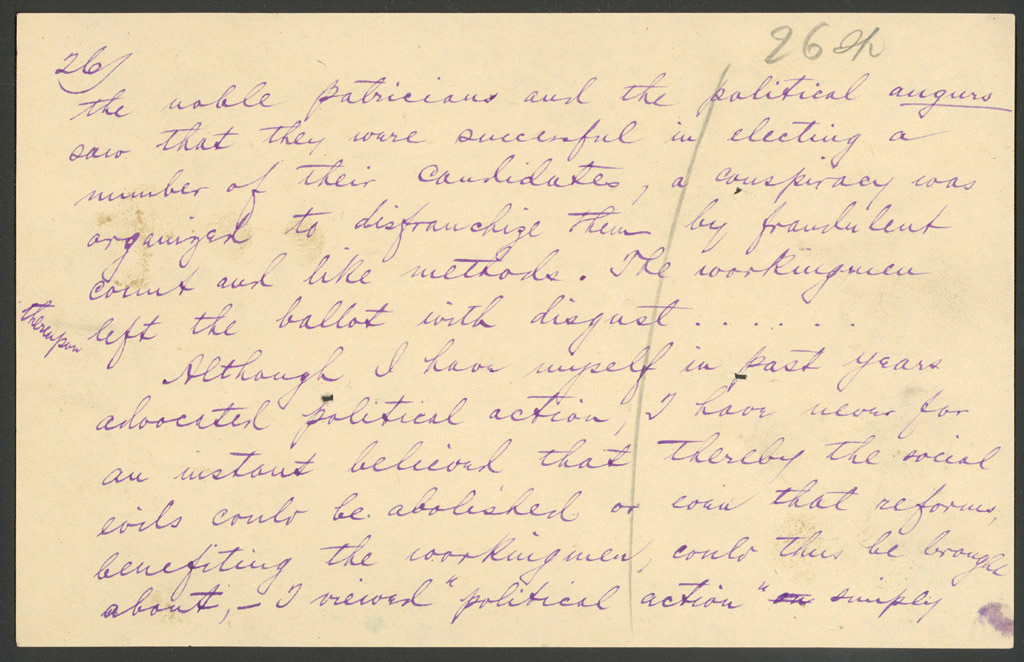 26
26
the noble patricians and the political augurs
saw that they were successful in electing a
number of their candidates, a conspiracy was
organized to disfranchize them by fraudulent
count and like methods. The workingmen
thereupon
left the ballot with disgust . . . . . . .
Although I have myself in past years
advocated political action, I have never for
an instant believed that thereby the social
evils could be abolished or even that reforms,
benefiting the workingmen, could thus be brought
about, – I viewed "political action" simply